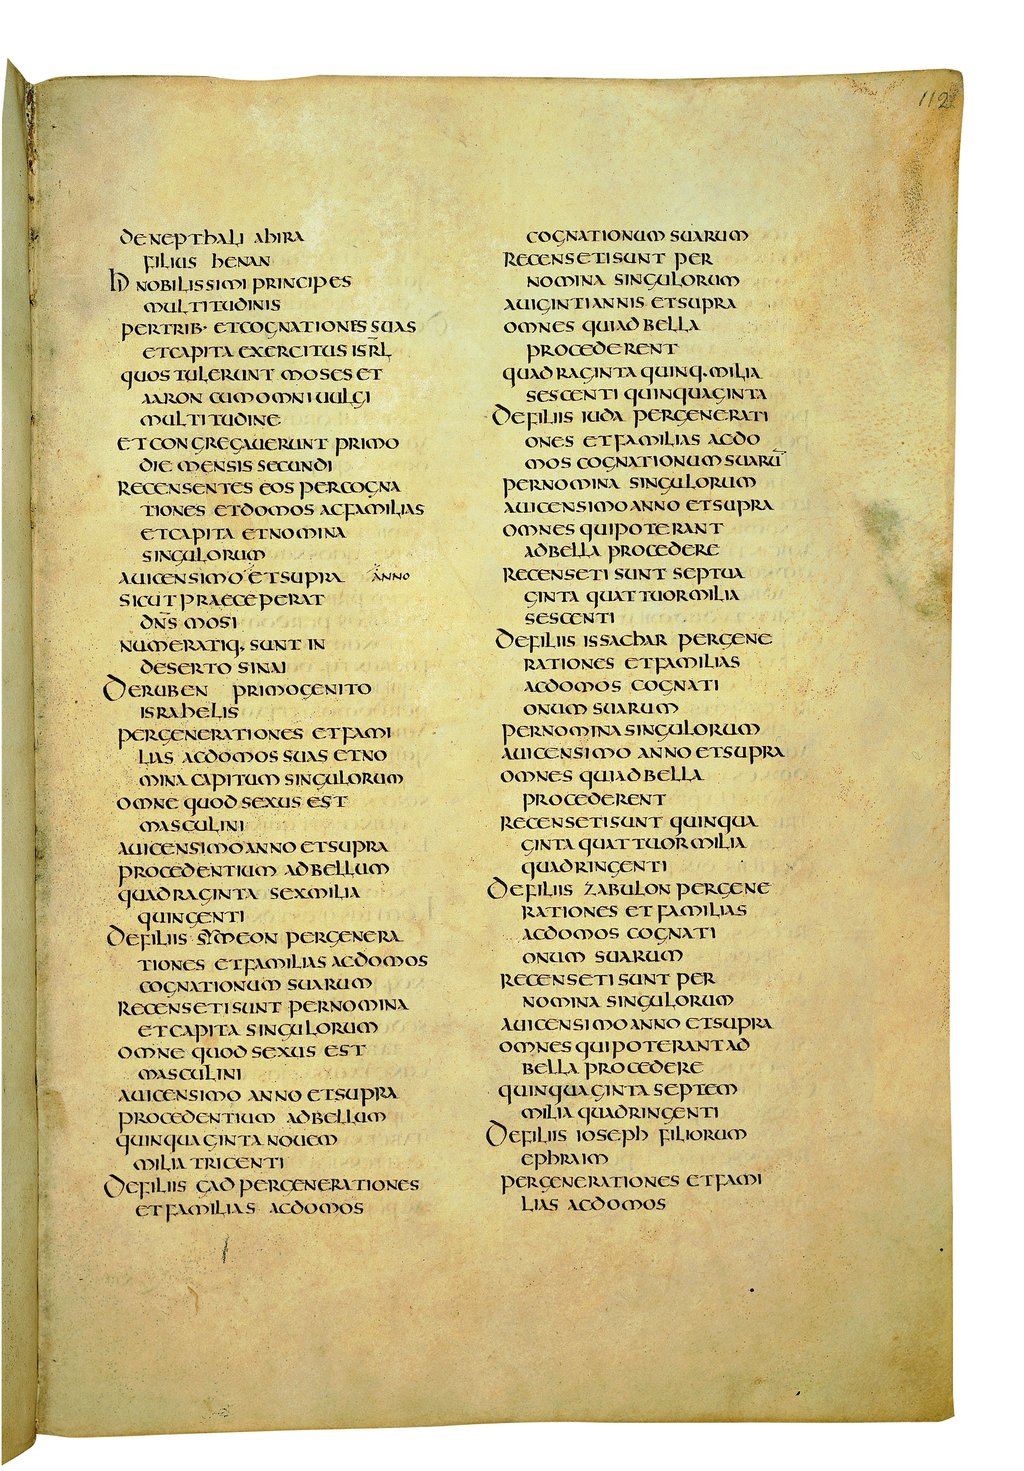 112
de Nepthali ahira
filius henan
hi nobilissimi principes
multitudinis
per trib· et cognationes suas
et capita exercitus isrl̅
quos tulerunt moses et
aaron cum omni uulgi
multitudine
et congregauerunt primo
die mensis secundi
recensentes eos per cogna
tiones et domos ac familias
et capita et nomina
singulorum
a uicensimo et supra anno
sicut praeceperat
dn̅s mosi
numeratiq· sunt in
deserto sinai
De ruben primogenito
israhelis
per generationes et fami
lias ac domos suas et no
mina capitum singulorum
omne quod sexus est
masculini
a uicensimo anno et supra
procedentium ad bellum
quadraginta sex milia
quingenti
De filiis symeon per genera
tiones et familias ac domos
cognationum suarum
recenseti sunt per nomina
et capita singulorum
omne quod sexus est
masculini
a uicensimo anno et supra
procedentium ad bellum
quinquaginta nouem
milia tricenti
De filiis gad per generationes
et familias ac domos
cognationum suarum
recenseti sunt per
nomina singulorum
a uiginti annis et supra
omnes qui ad bella
procederent
quadraginta quinq· milia
sescenti quinquaginta
De filiis iuda per generati
ones et familias ac do
mos cognationum suaru̅
per nomina singulorum
a uicensimo anno et supra
omnes qui poterant
ad bella procedere
recenseti sunt septua
ginta quattuor milia
sescenti
De filiis issachar per gene
rationes et familias
ac domos cognati
onum suarum
per nomina singulorum
a uicensimo anno et supra
omnes qui ad bella
procederent
recenseti sunt quinqua
ginta quattuor milia
quadringenti
De filiis zabulon per gene
rationes et familias
ac domos cognati
onum suarum
recenseti sunt per
nomina singulorum
a uicensimo anno et supra
omnes qui poterant ad
bella procedere
quinquaginta septem
milia quadringenti
De filiis ioseph filiorum
ephraim
per generationes et fami
lias ac domos